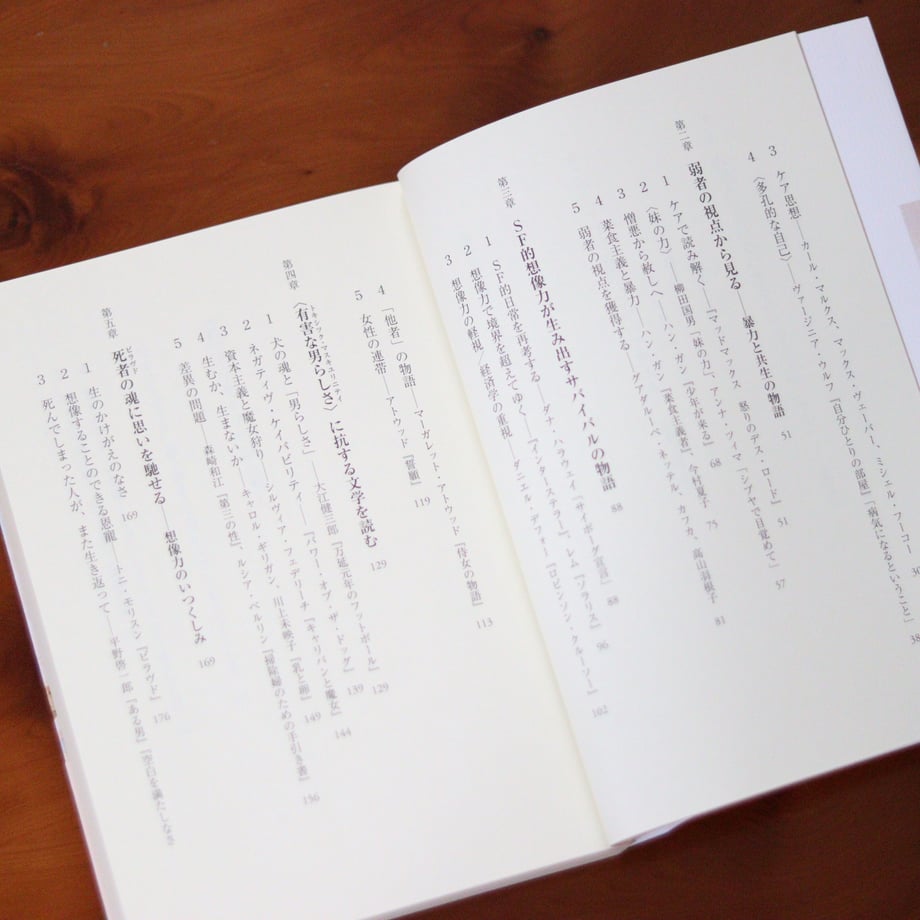 3 ケア思想――カール・マルクス、マックス・ヴェーバー、ミシェル・フーコー 30
4 〈多孔的な自己〉――ヴァージニア・ウルフ『自分ひとりの部屋』「病気になるということ」 38
第二章 弱者の視点から見る――暴力と共生の物語 51
1 ケアで読み解く――『マッドマックス 怒りのデス・ロード』 51
2 〈妹の力〉――柳田国男「妹の力」、アンナ・ツィマ『シブヤで目覚めて』 57
3 憎悪から赦しへ――ハン・ガン『少年が来る』 68
4 菜食主義と暴力――ハン・ガン『菜食主義者』、今村夏子 75
5 弱者の視点を獲得する――グアダルーペ・ネッテル、カフカ、高山羽根子 81
第三章 SF的想像力が生み出すサバイバルの物語 88
1 SF的日常を再考する――ダナ・ハラウェイ「サイボーグ宣言」 88
2 想像力で境界を超えてゆく――『インターステラー』、レム『ソラリス』 96
3 想像力の軽視/経済学の重視――ダニエル・デフォー『ロビンソン・クルーソー』 102
4 「他者」の物語――マーガレット・アトウッド『侍女の物語』 113
5 女性の連帯――アトウッド『誓願』 119
トキシック・マスキュリニティ
第四章 〈有害な男らしさ〉に抗する文学を読む 129
1 犬の魂と「男らしさ」――大江健三郎『万延元年のフットボール』 129
2 ネガティヴ・ケイパビリティ――『パワー・オブ・ザ・ドッグ』 139
3 資本主義と魔女狩り――シルヴィア・フェデリーチ『キャリバンと魔女』 144
4 生むか、生まないか――キャロル・ギリガン、川上未映子『乳と卵』 149
5 差異の問題――森崎和江『第三の性』、ルシア・ベルリン『掃除婦のための手引き書』 156
ビラヴド
第五章 死者の魂に思いを馳せる――想像力のいつくしみ 169
1 生のかけがえのなさ 169
2 想像することのできる恩寵――トニ・モリスン『ビラヴド』 176
3 死んでしまった人が、また生き返って――平野啓一郎『ある男』『空白を満たしなさ